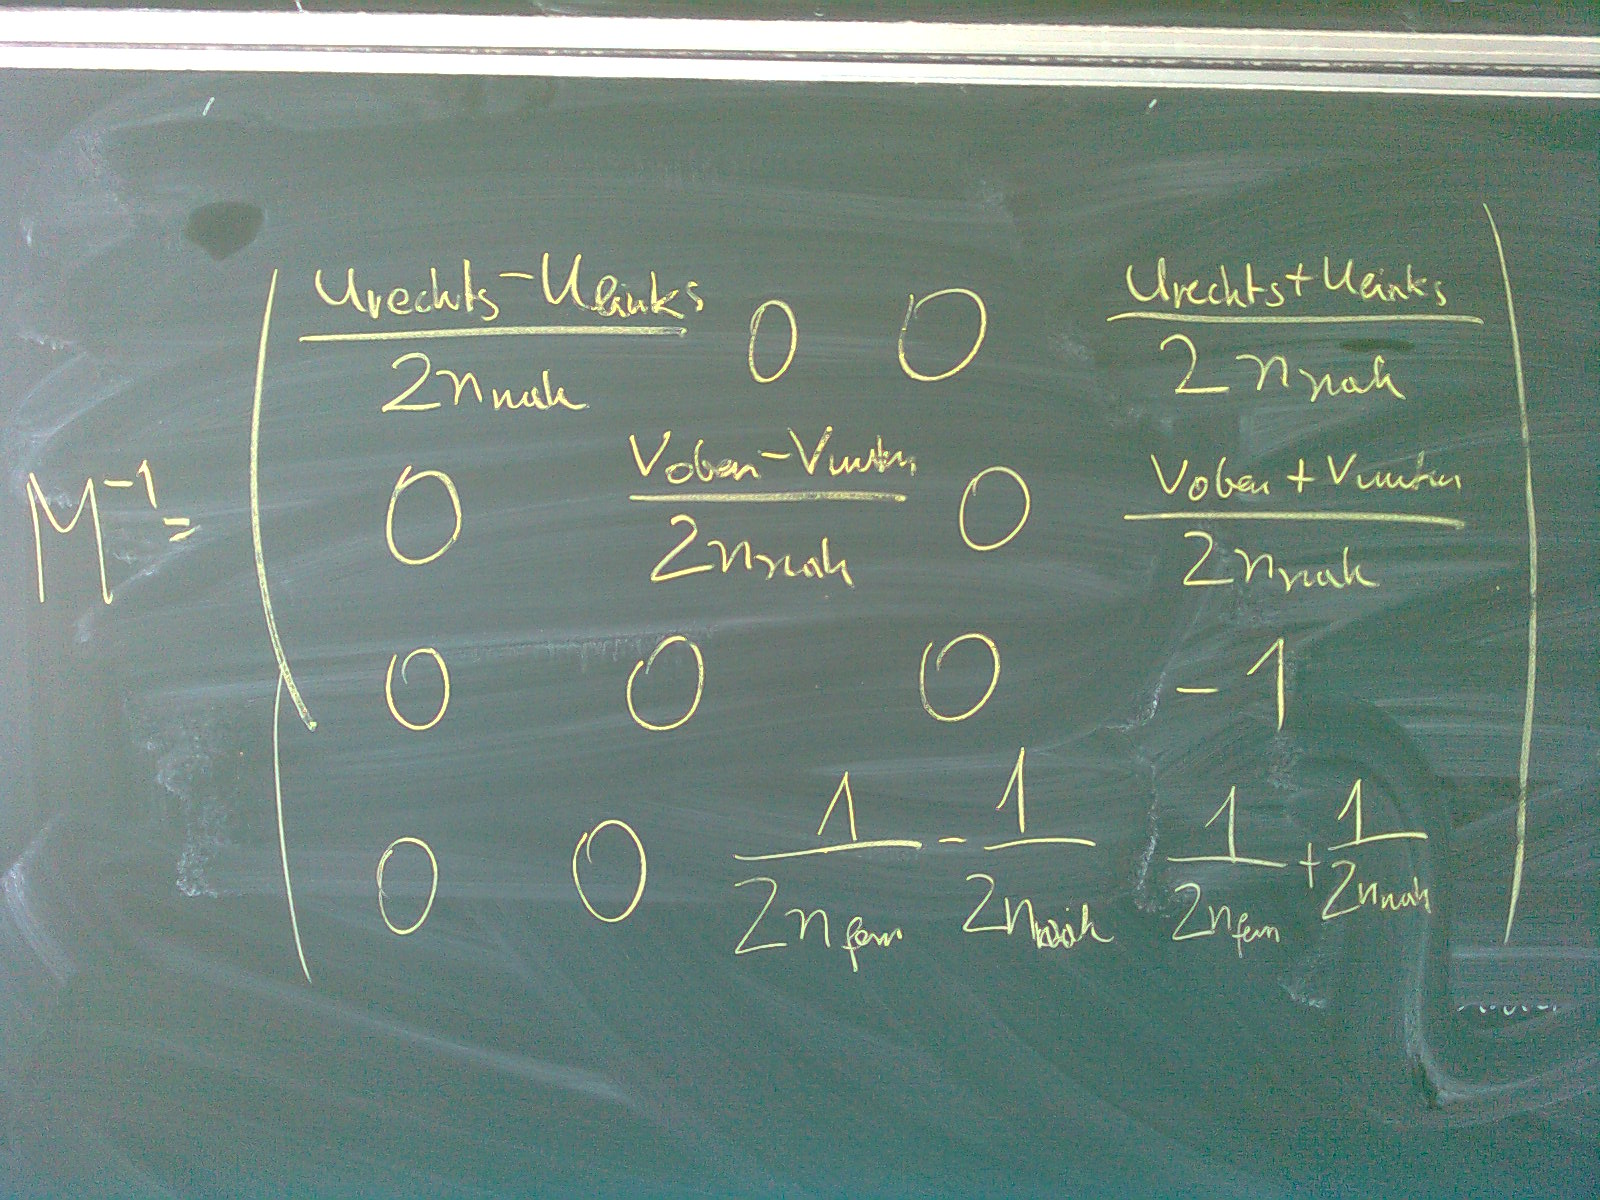 M⁻¹ =
u_rechts − u_links / 2n_nah 0 0 u_rechts + u_links / 2n_nah
0 v_oben − v_unten / 2n_nah 0 v_oben + v_unten / 2n_nah
0 0 0 −1
0 0 1 / 2n_fern − 1 / 2n_nah 1 / 2n_fern + 1 / 2n_nah